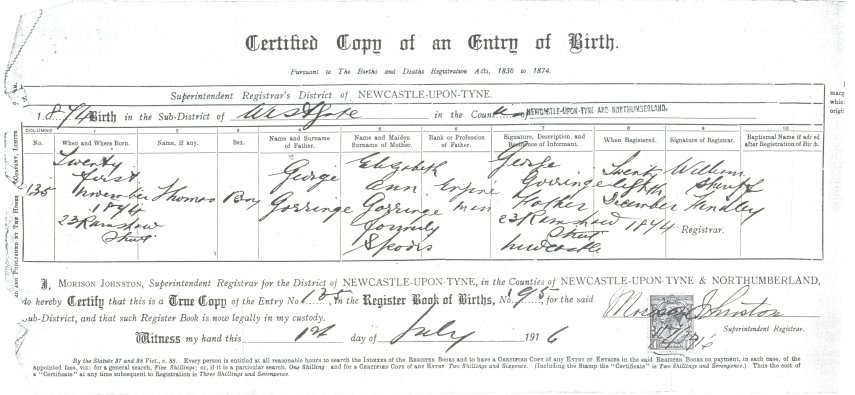 Certified Copy of an Entry of Birth.
Pursuant to The Births and Deaths Registration Acts, 1836 to 1874.
Superintendent Registrar's District of NEWCASTLE-UPON-TYNE.
1874 Birth in the Sub-District of Westgate in the Count of NEWCASTLE-UPON-TYNE AND NORTHUMBERLAND.
COLUMNS 1 2 3 4 5 6 7 8 9 10
No. When and Where Born. Name, if any. Sex. Name and Surname of Father. Name and Maiden Surname of Mother. Rank or Profession of Father. Signature, Description, and Residence of Informant. When Registered. Signature of Registrar. Baptismal Name if added after Registration of Birth.
135 Twenty first November 1874 23 Ramshaw Street Thomas Boy George Gorringe Elizabeth Ann Gorringe formerly Engine man George Gorringe Father 23 Ramshaw Street Newcastle Twenty fifth December 1874 William Hindley Registrar.
I, MORISON JOHNSTON, Superintendent Registrar for the District of NEWCASTLE-UPON-TYNE, in the Counties of NEWCASTLE-UPON-TYNE & NORTHUMBERLAND,
do hereby Certify that this is a True Copy of the Entry No. 135, in the Register Book of Births, No. 95, for the said
Sub-District, and that such Register Book is now legally in my custody.
Morison Johnston
Superintendent Registrar.
Witness my hand this 1st day of July 1916
By the Statute 37 and 38 Vict., c. 88. Every person is entitled at all reasonable hours to search the INDEXES of the REGISTER BOOKS and to have a CERTIFIED COPY of any ENTRY or ENTRIES in the said REGISTER BOOKS on payment, in each case, of the
appointed fees, viz: for a general search, Five Shillings; or, if it is a particular search, One Shilling and for a CERTIFIED COPY of any ENTRY Two Shillings and Sixpence. (Including the Stamp the "Certificate" is Two Shillings and Sevenpence.) Thus the cost of
a "Certificate" at any time subsequent to Registration is Three Shillings and Sevenpence.